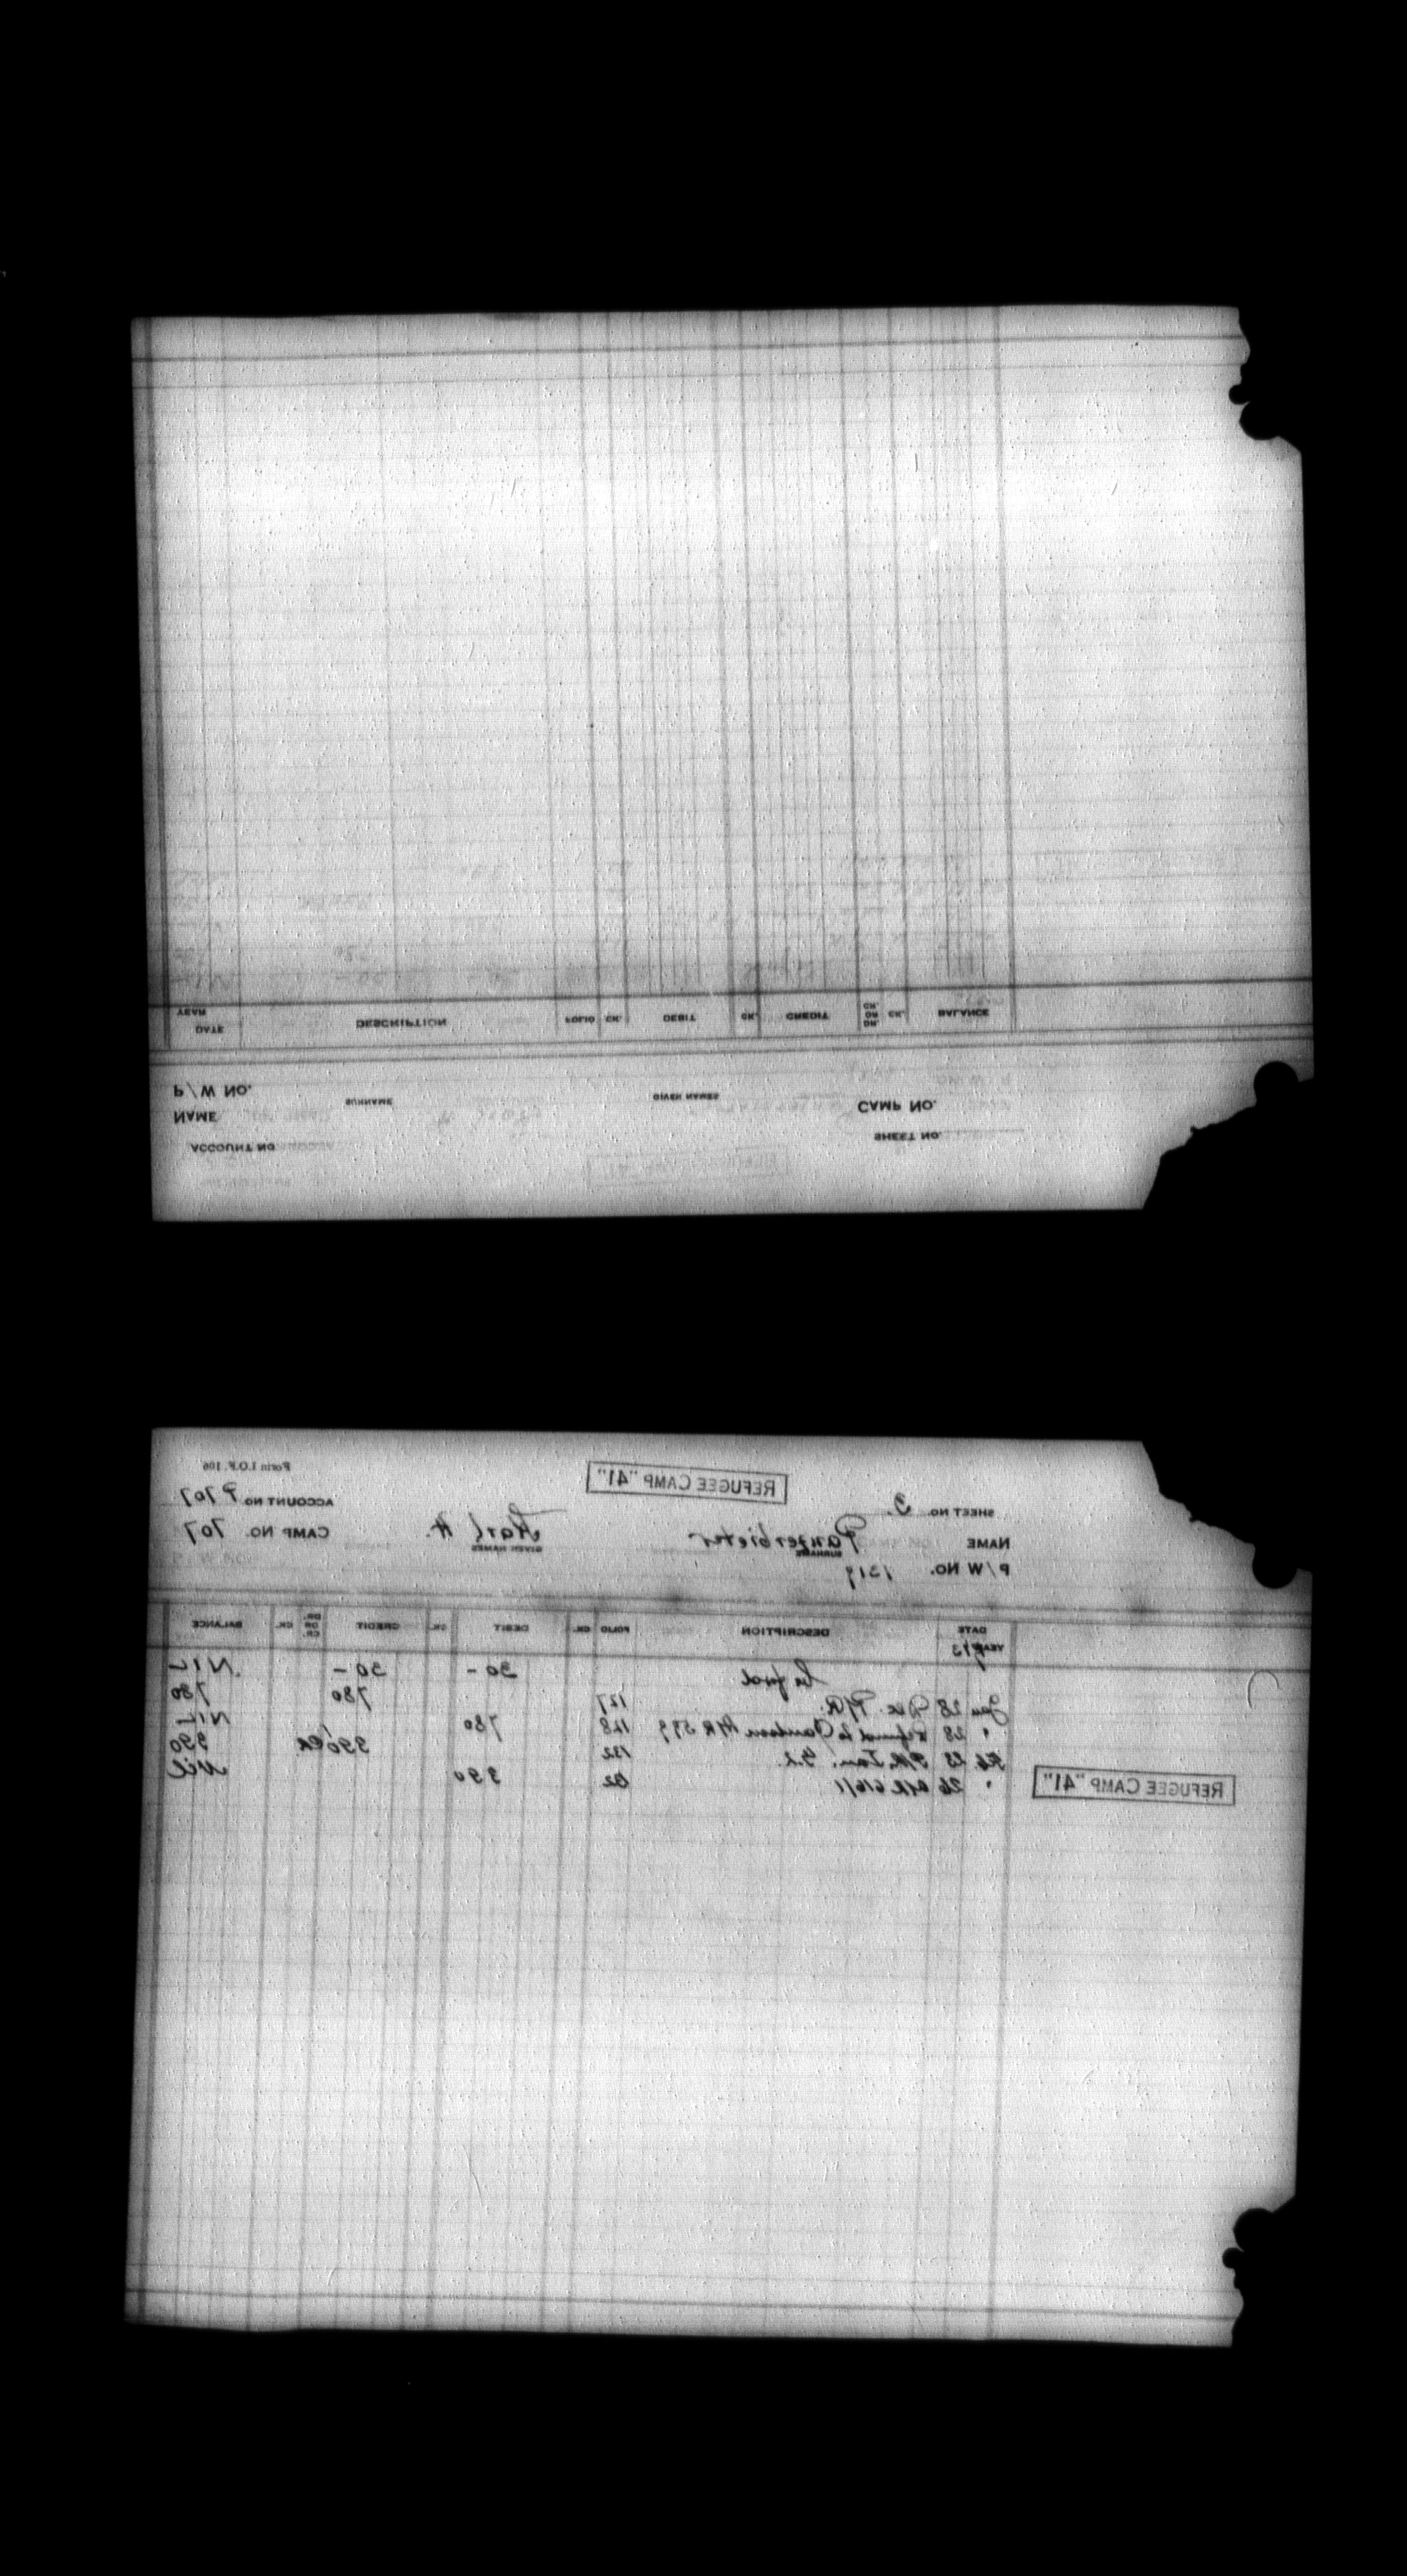 YEAR
DATE DESCRIPTION FOLIO CK. DEBIT CK. CREDIT CR. OR DR. CK. BALANCE
P/W NO.
SURNAME GIVEN NAMES
NAME CAMP NO.
ACCOUNT NO SHEET NO.
REFUGEE CAMP "41"
Form I.O.F. 106
REFUGEE CAMP "41"
SHEET NO. 3. ACCOUNT NO. P707
NAME Panzerbieter Karl H. CAMP NO. 707
SURNAME GIVEN NAMES
P/W NO. 1319
DATE DESCRIPTION FOLIO CK. DEBIT CK. CREDIT DR. OR CR. CK. BALANCE
YEAR
30 - 30 - NIL
Jan 28 Dec. P/R. 127 780 780
" 28 Refund to 128 780 NIL
Feb 23 P/R. Jan. 132 390 CR 390
" 26 A/R 616/1 132 390 Nil
REFUGEE CAMP "41"